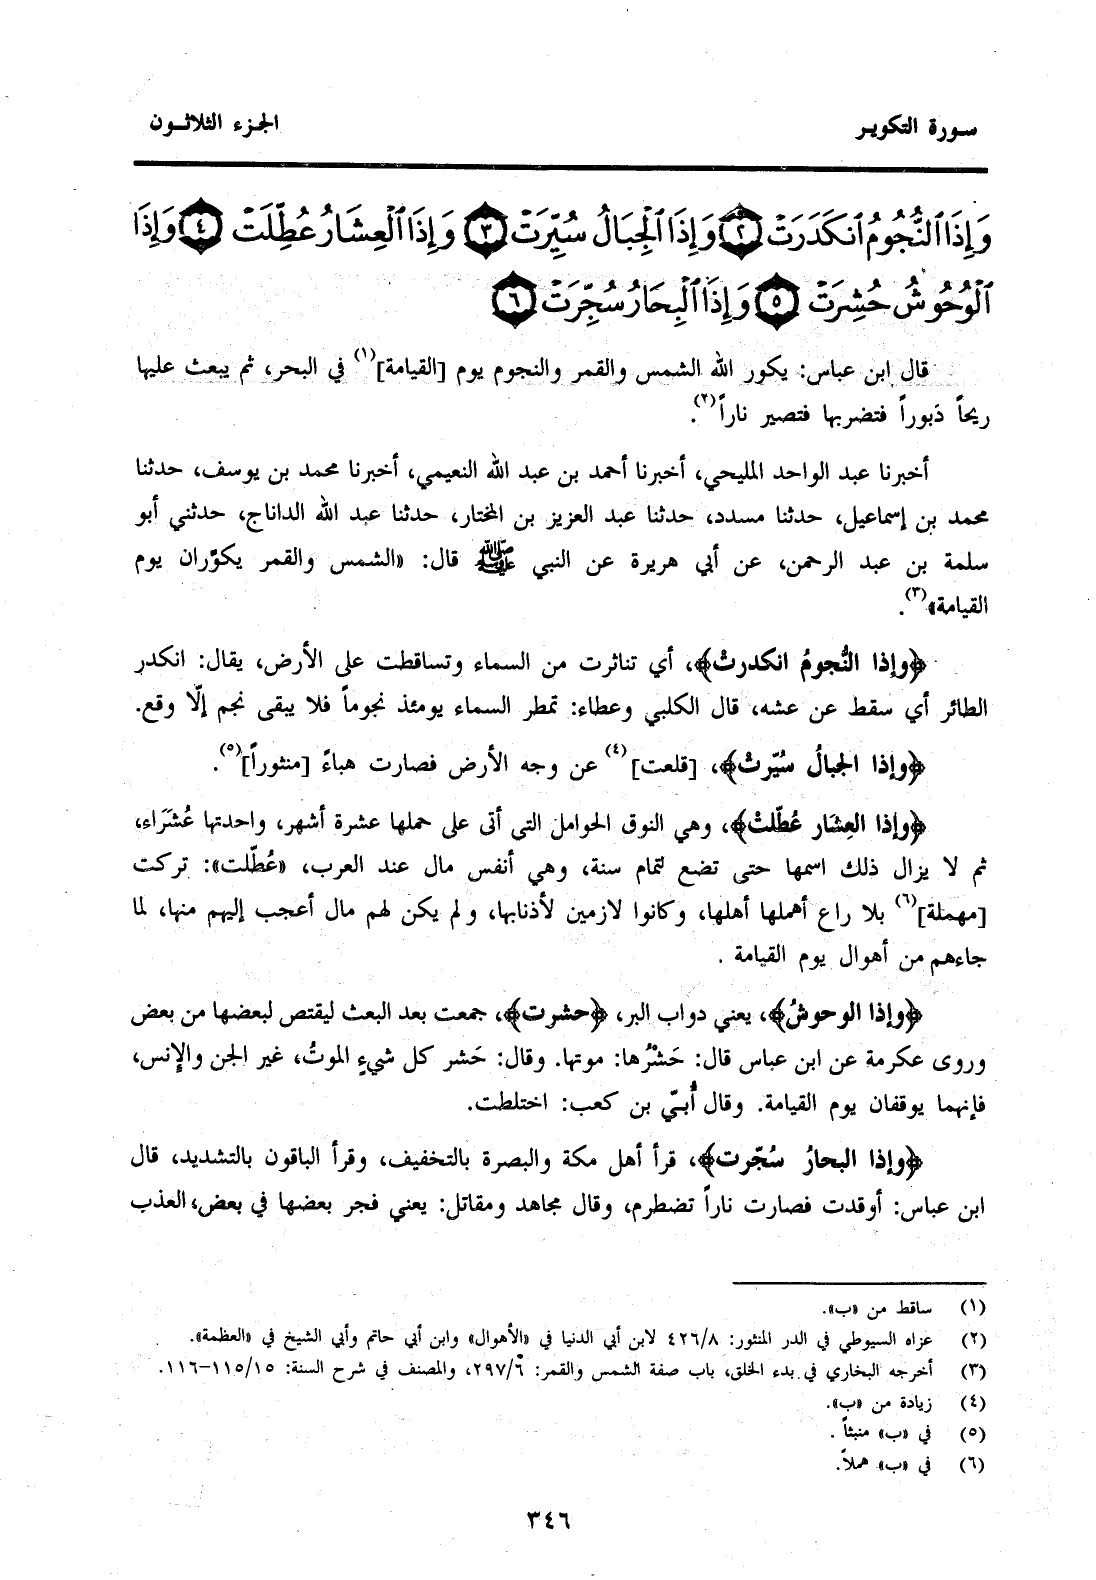 سورة التكوير
الجزء الثلاثون
وَإِذَا ٱلنُّجُومُ ٱنكَدَرَتْ ﴿٢﴾ وَإِذَا ٱلْجِبَالُ سُيِّرَتْ ﴿٣﴾ وَإِذَا ٱلْعِشَارُ عُطِّلَتْ ﴿٤﴾ وَإِذَا
ٱلْوُحُوشُ حُشِرَتْ ﴿٥﴾ وَإِذَا ٱلْبِحَارُ سُجِّرَتْ ﴿٦﴾
قال ابن عباس: يكور الله الشمس والقمر والنجوم يوم [القيامة](١) في البحر، ثم يبعث عليها
ريحاً دَبوراً فتضربها فتصير ناراً(٢).
أخبرنا عبد الواحد المليحي، أخبرنا أحمد بن عبد الله النعيمي، أخبرنا محمد بن يوسف، حدثنا
محمد بن إسماعيل، حدثنا مسدد، حدثنا عبد العزيز بن المختار، حدثنا عبد الله الداناج، حدثني أبو
سلمة بن عبد الرحمن، عن أبي هريرة عن النبي ﷺ قال: «الشمس والقمر يكوَّران يوم
القيامة»(٣).
﴿وإذا النُّجومُ انكدرتْ﴾، أي تناثرت من السماء وتساقطت على الأرض، يقال: انكدر
الطائر أي سقط عن عشه، قال الكلبي وعطاء: تمطر السماء يومئذ نجوماً فلا يبقى نجم إلّا وقع.
﴿وإذا الجبالُ سُيّرتْ﴾، [قلعت](٤) عن وجه الأرض فصارت هباءً [منثوراً](٥).
﴿وإذا العِشَار عُطّلتْ﴾، وهي النوق الحوامل التي أتى على حملها عشرة أشهر، واحدتها عُشَرَاء،
ثم لا يزال ذلك اسمها حتى تضع لتمام سنة، وهي أنفس مال عند العرب، «عُطّلت»: تركت
[مهملة](٦) بلا راع أهملها أهلها، وكانوا لازمين لأذنابها، ولم يكن لهم مال أعجب إليهم منها، لما
جاءهم من أهوال يوم القيامة .
﴿وإذا الوحوشُ﴾، يعني دواب البر، ﴿حشرت﴾، جمعت بعد البعث ليقتص لبعضها من بعض
وروى عكرمة عن ابن عباس قال: حَشْرُها: موتها. وقال: حَشر كل شيءٍ الموتُ، غير الجن والإنس،
فإنهما يوقفان يوم القيامة. وقال أُبيّ بن كعب: اختلطت.
﴿وإذا البحارُ سُجّرت﴾، قرأ أهل مكة والبصرة بالتخفيف، وقرأ الباقون بالتشديد، قال
ابن عباس: أوقدت فصارت ناراً تضطرم، وقال مجاهد ومقاتل: يعني فجر بعضها في بعض، العذب
(١) ساقط من «ب».
(٢) عزاه السيوطي في الدر المنثور: ٤٢٦/٨ لابن أبي الدنيا في «الأهوال» وابن أبي حاتم وأبي الشيخ في «العظمة».
(٣) أخرجه البخاري في بدء الخلق، باب صفة الشمس والقمر: ٢٩٧/٦، والمصنف في شرح السنة: ١١٥/١٥-١١٦.
(٤) زيادة من «ب».
(٥) في «ب» منبثاً .
(٦) في «ب» هملاً.
٣٤٦